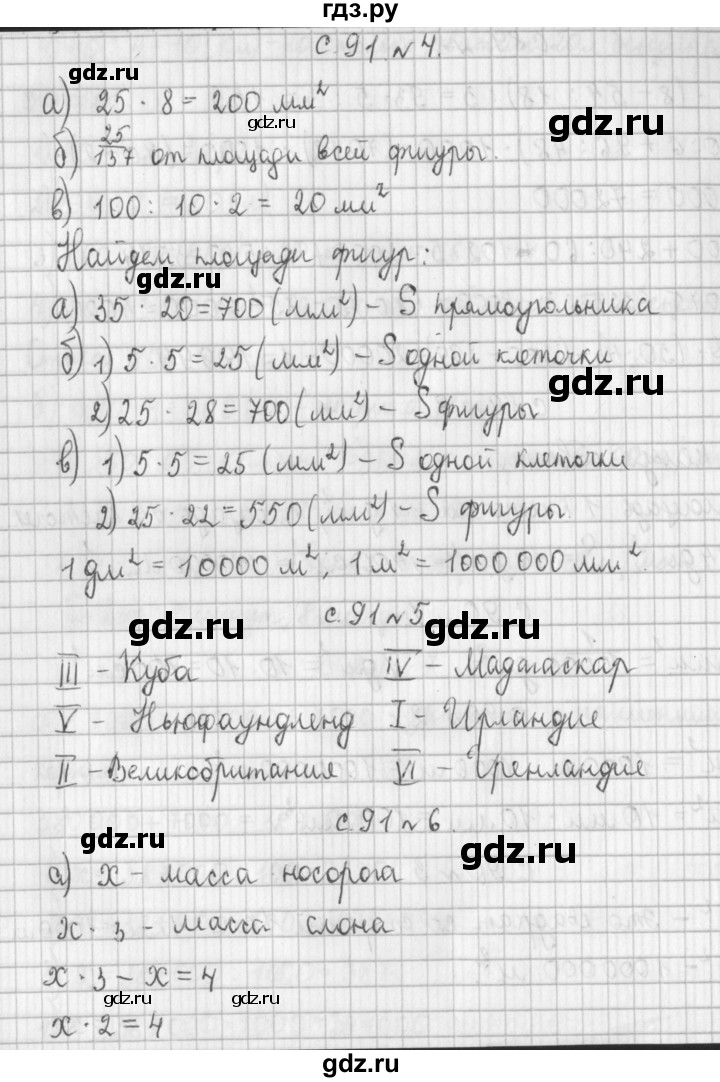 гдз.ру
с.91. №4.
gdz.ru
gdz.ru
а) 25 · 8 = 200 мм²
gdz.ru
б) 25/137 от площади всей фигуры.
в) 100 : 10 · 2 = 20 мм²
Найдем площади фигур:
gdz.ru
а) 35 · 20 = 700 (мм²) – S прямоугольника
б) 1) 5 · 5 = 25 (мм²) – S одной клеточки
gdz.ru
2) 25 · 28 = 700 (мм²) – S фигуры
в) 1) 5 · 5 = 25 (мм²) – S одной клеточки
2) 25 · 22 = 550 (мм²) – S фигуры.
1 дм² = 10000 м², 1 м² = 1000 000 мм².
gdz.ru
с.91 №5
gdz.ru
III – Куба IV – Мадагаскар
V – Ньюфаундленд I – Ирландия
II – Великобритания VI – Гренландия
с.91 №6.
gdz.ru
gdz.ru
а) х – масса носорога
х · 3 – масса слона
х · 3 – х = 4
gdz.ru
gdz.ru
х · 2 = 4
gdz.ru
gdz.ru